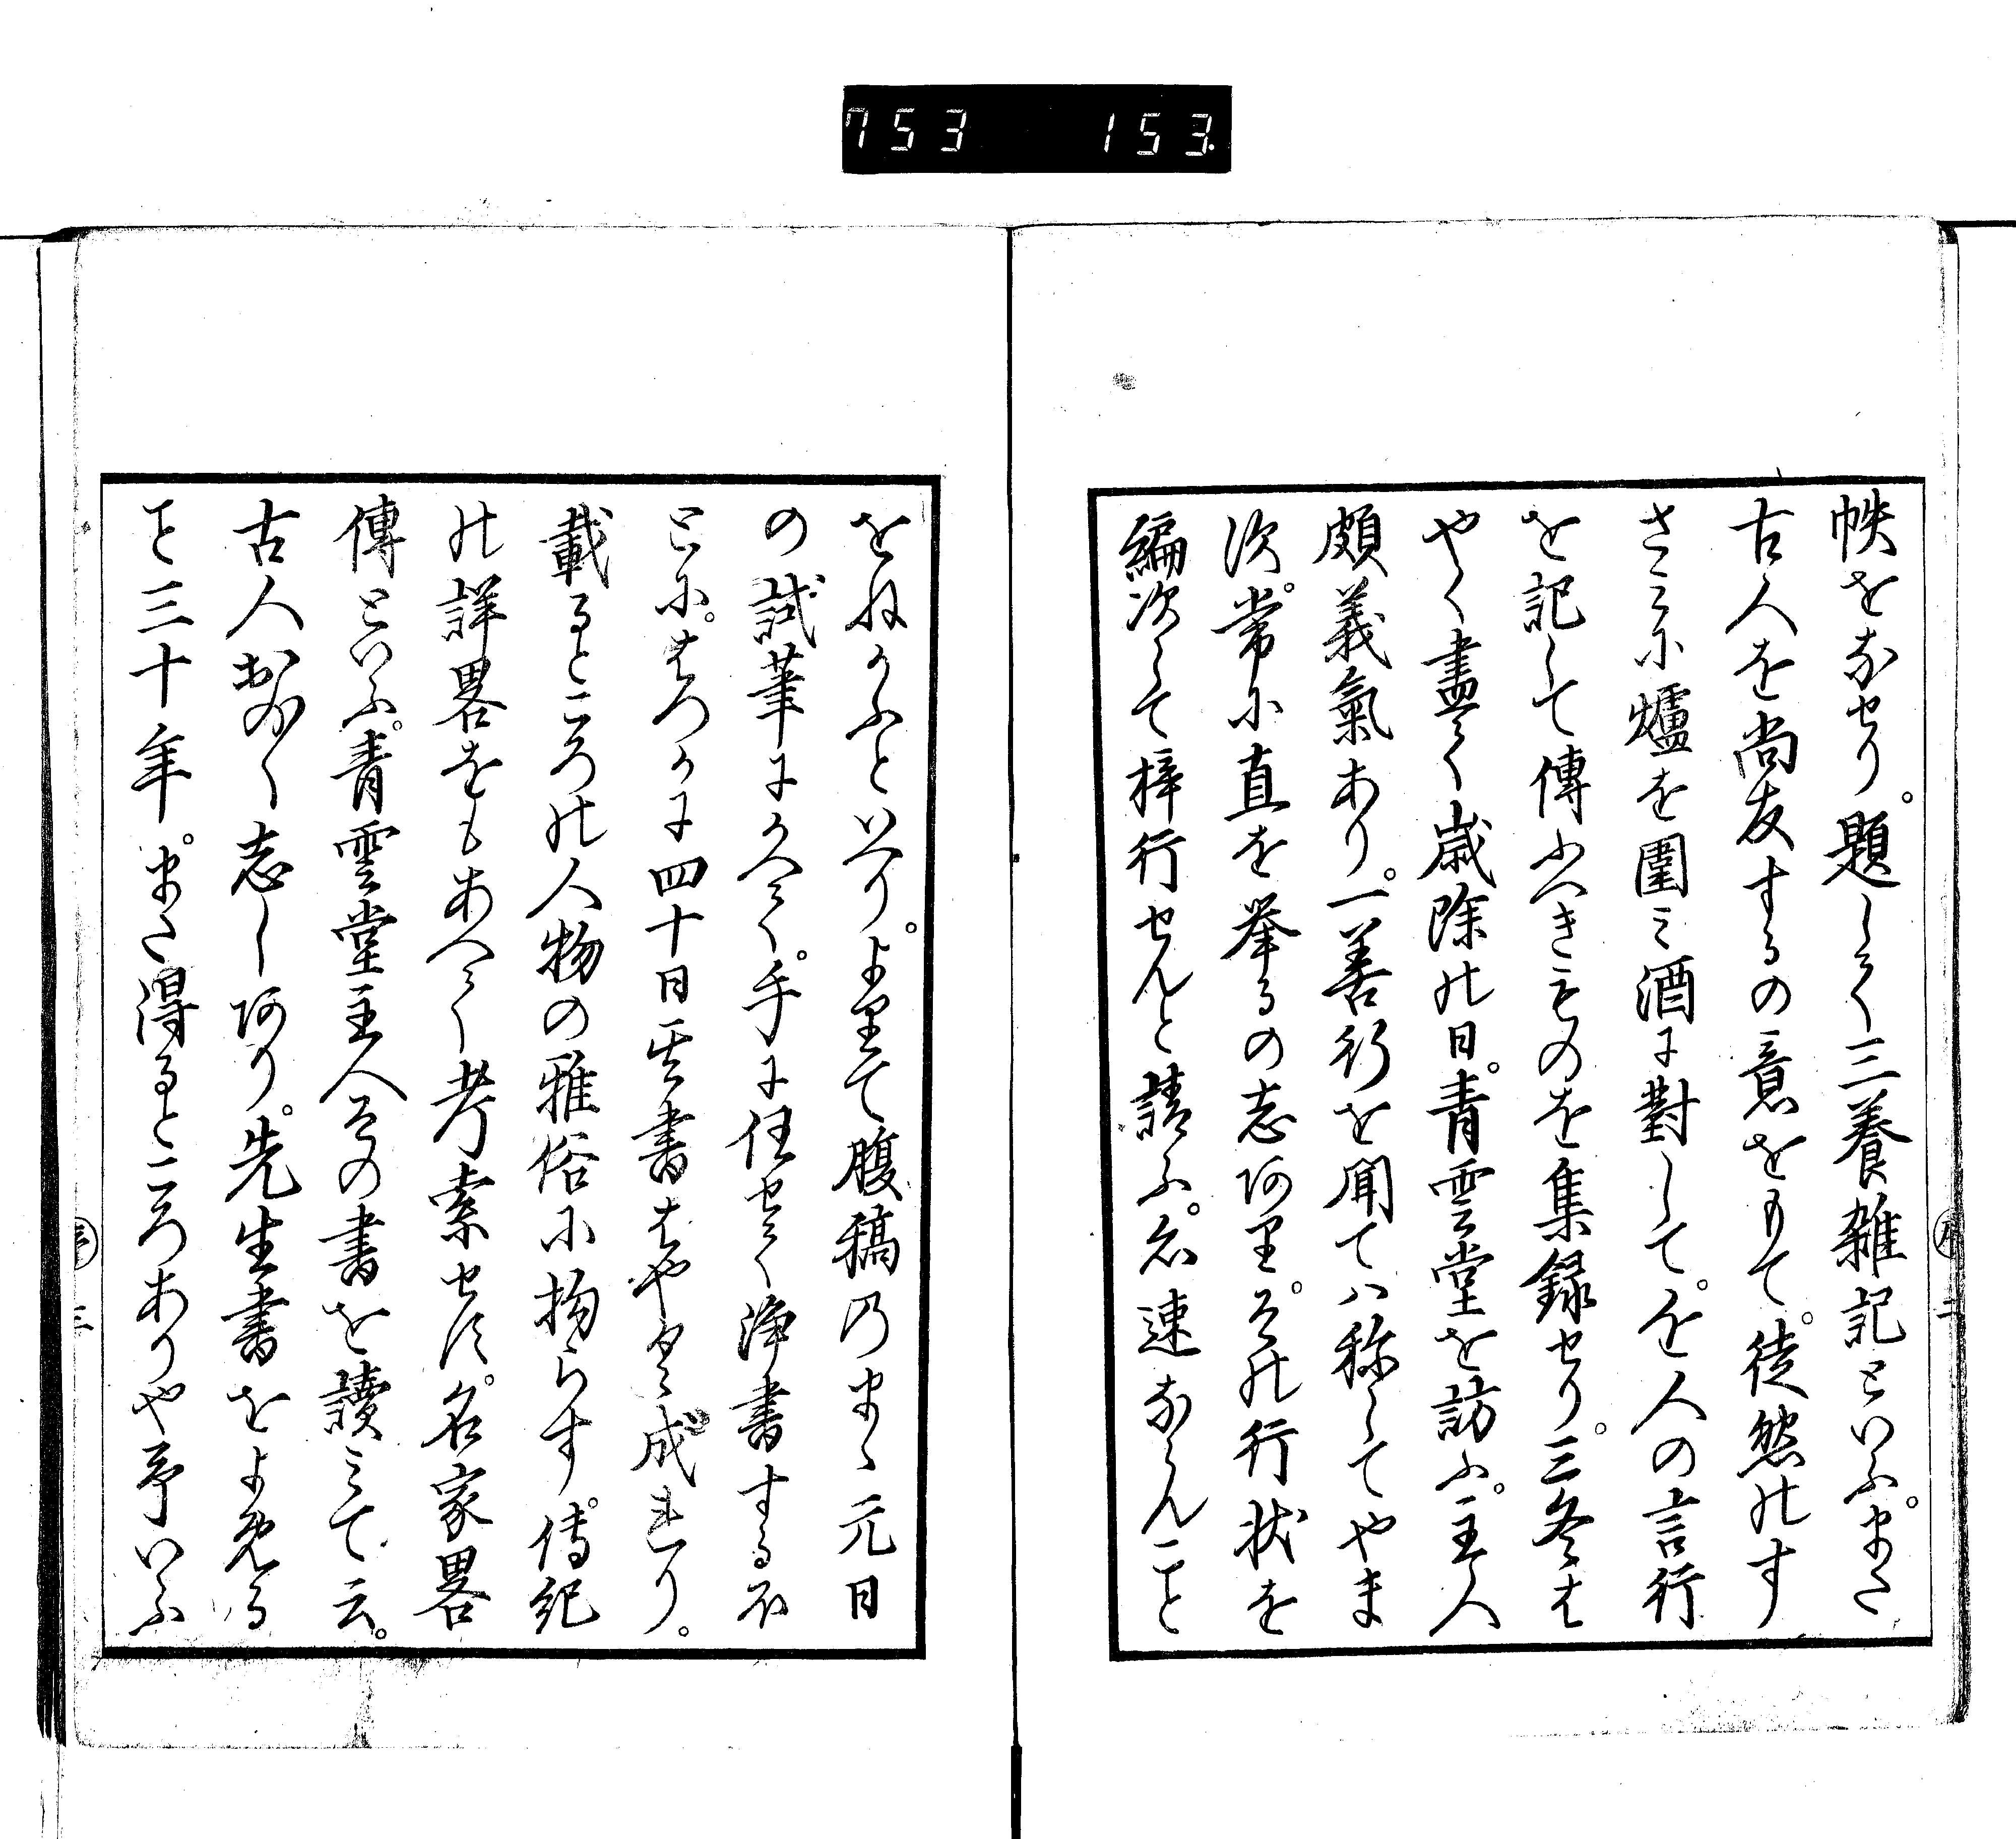 753 153.
帙をなせり。題して三養雑記といふ。また
古人を尚友するの意をもて。徒然のす
さみに爐を圍ミ酒に對して。を人の言行
を記して傳ふへきものを集録せり。三冬は
やく盡て歳除の日。青雲堂を訪ふ。主人
頗義氣あり。一善行を聞てハ称してやま
次。常に直を挙るの志あり。その行状を
編次して梓行せんと請ふ。名速ならんこと
をねかふといへり。よりて腹稿のまゝ元日
の試筆にかへて。手に任せて浄書するほ
とに。はつかに四十日其書はやく成れり。
載るところの人物の雅俗に拘らす。傳紀
の詳畧をもあへて考索せす。名家畧
傳といふ。青雲堂主人その書を讀ミて云。
古人おのく志しあり。先生書をよめる
こと三十年。また得るところありや予いふ
序 二
序 三